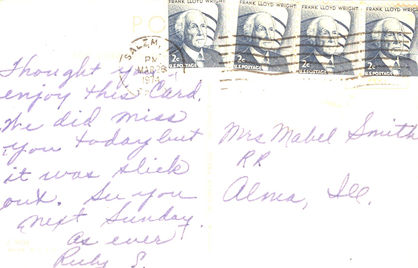 PO
FRANK LLOYD WRIGHT FRANK LLOYD WRIGHT FRANK LLOYD WRIGHT FRANK LLOYD WRIGHT
2c 2c 2c 2c
U.S. POSTAGE U.S. POSTAGE U.S. POSTAGE U.S. POSTAGE
SALEM,
PM
Thought
enjoy this Card.
We did miss
you today but
it was slick
out. See you
next Sunday.
as ever
Ruby S.
Mrs Mabel Smith
RR
Alma, Ill.